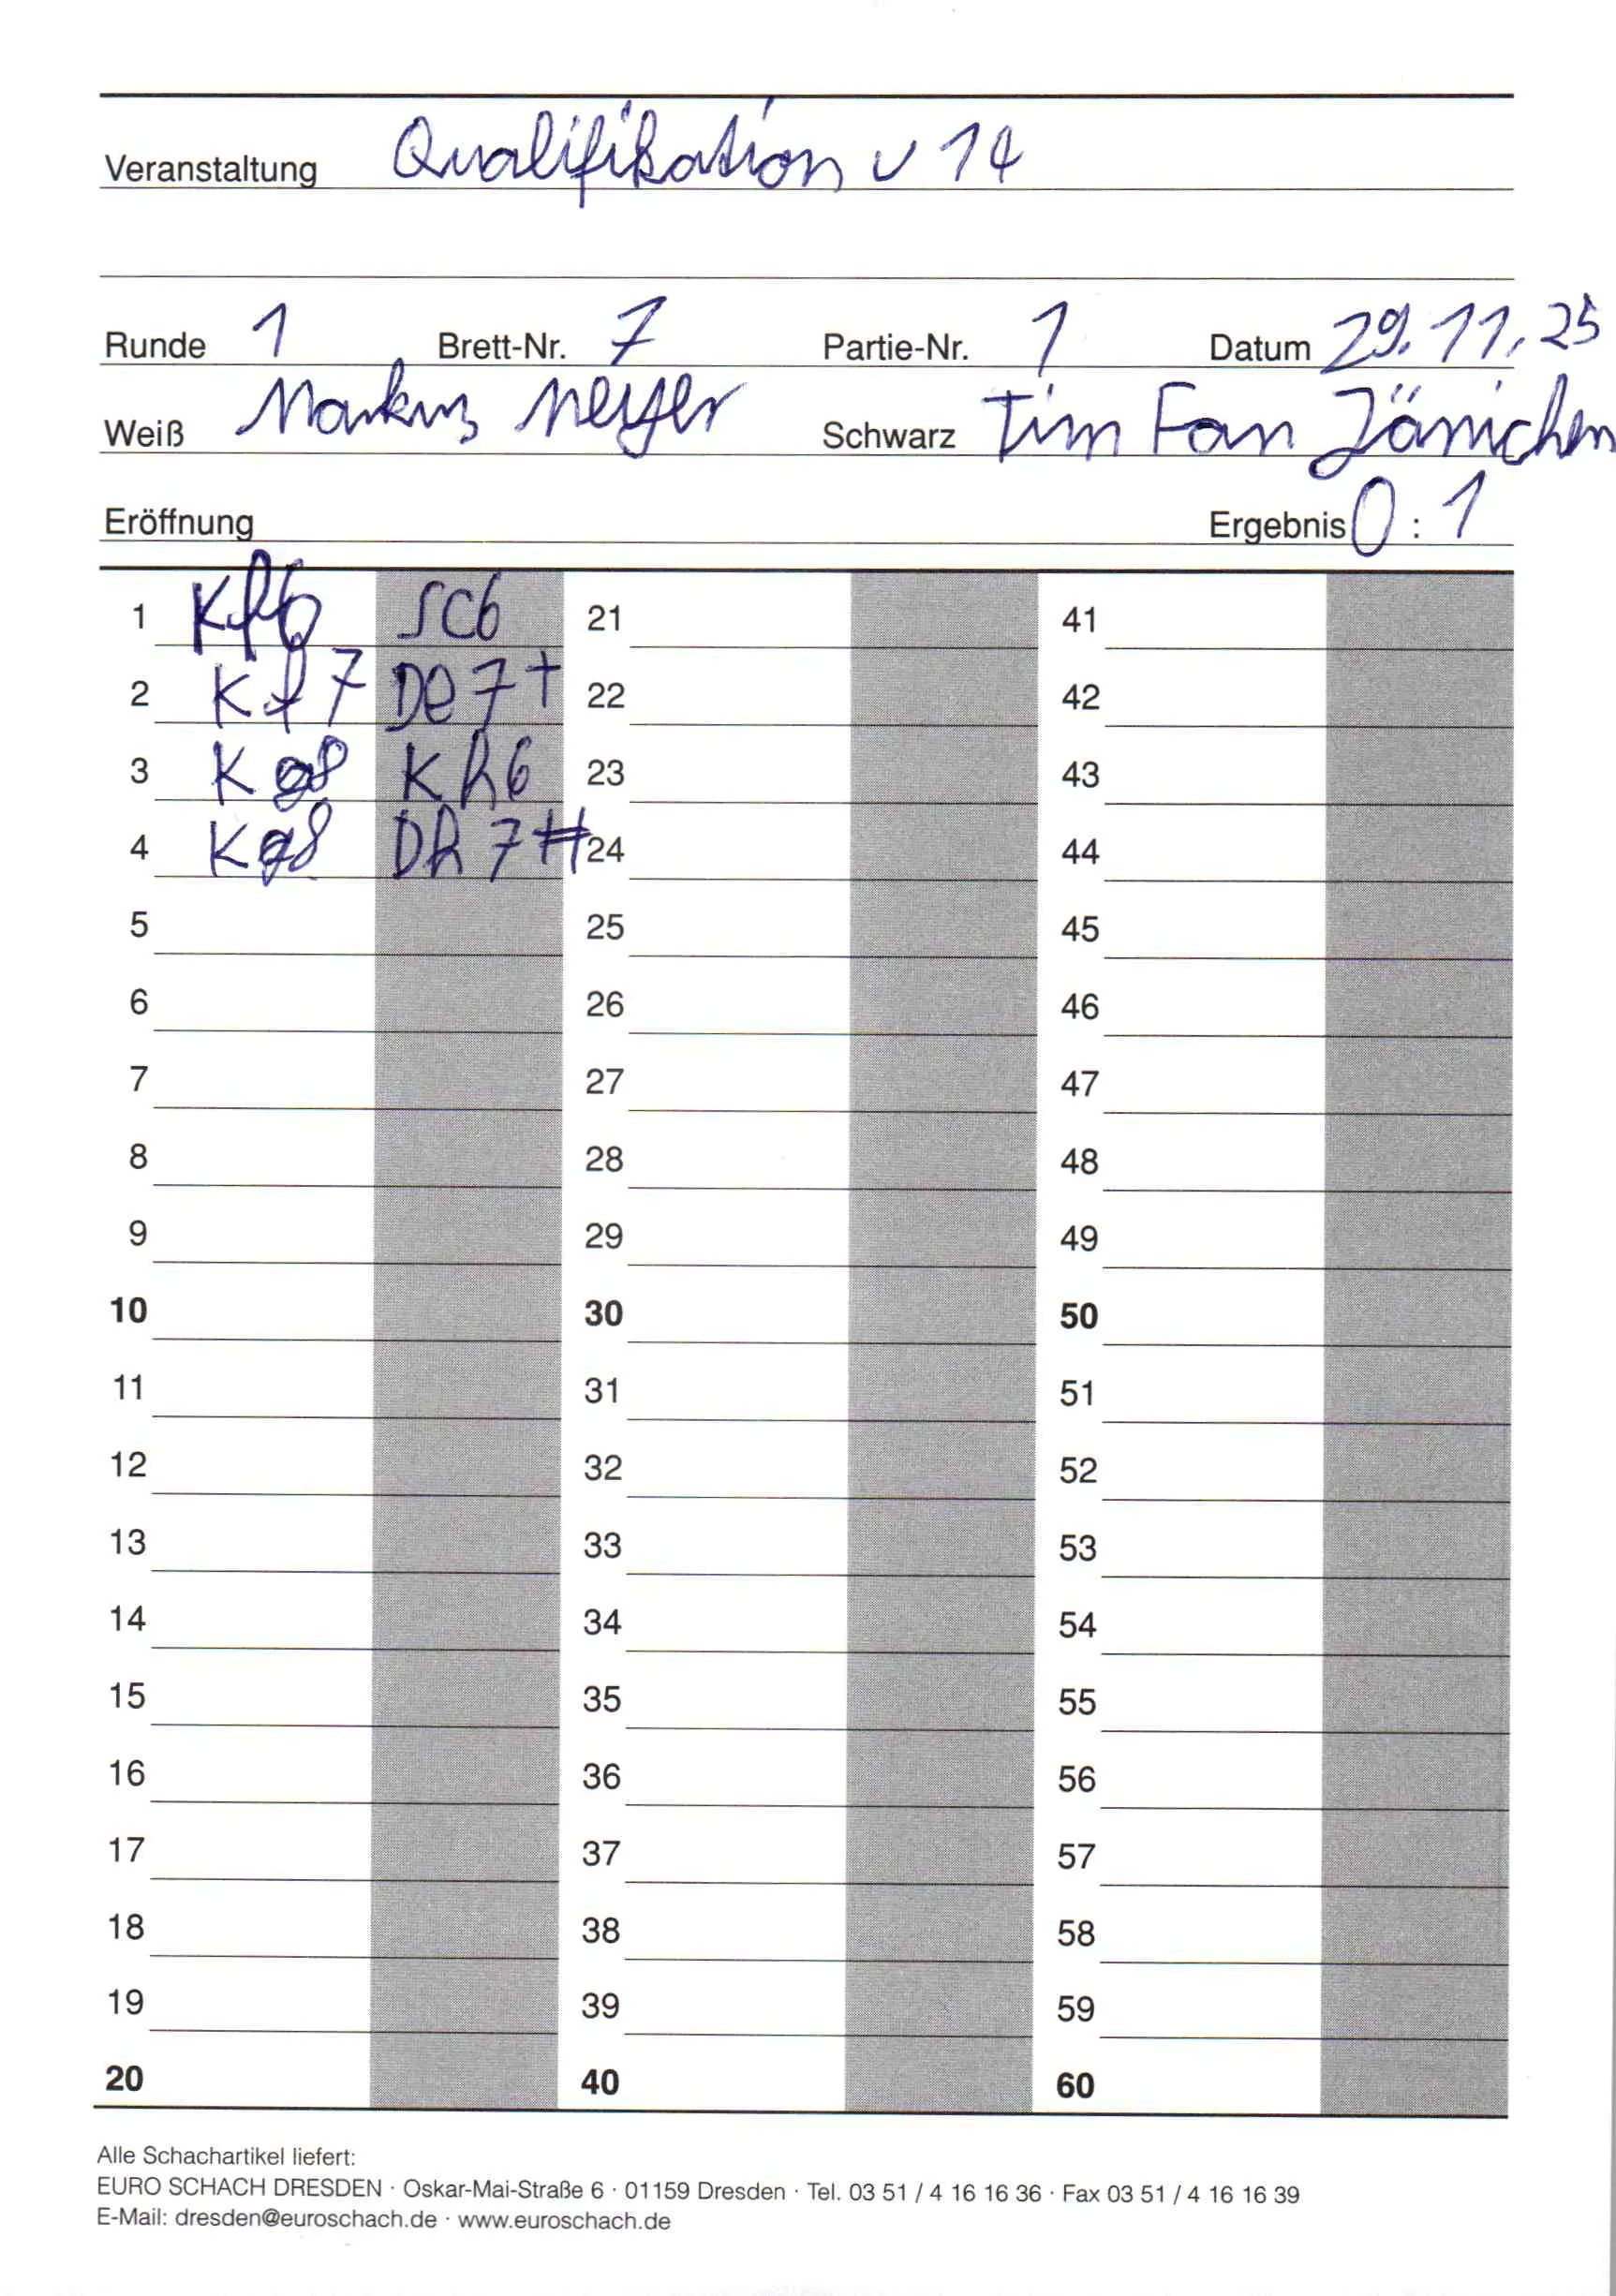 Veranstaltung Qualifikation U 14
Runde 1 Brett-Nr. 7 Partie-Nr. 1 Datum 29.11.25
Weiß Markus Meyer Schwarz Tim Fan Jänichen
Eröffnung Ergebnis 0 : 1
1 Kf6 Sc6 21 41
2 Kf7 De7+ 22 42
3 Kg8 Kh6 23 43
4 Kg8 Dh7# 24 44
5 25 45
6 26 46
7 27 47
8 28 48
9 29 49
10 30 50
11 31 51
12 32 52
13 33 53
14 34 54
15 35 55
16 36 56
17 37 57
18 38 58
19 39 59
20 40 60
Alle Schachartikel liefert:
EURO SCHACH DRESDEN · Oskar-Mai-Straße 6 · 01159 Dresden · Tel. 03 51 / 4 16 16 36 · Fax 03 51 / 4 16 16 39
E-Mail: dresden@euroschach.de · www.euroschach.de